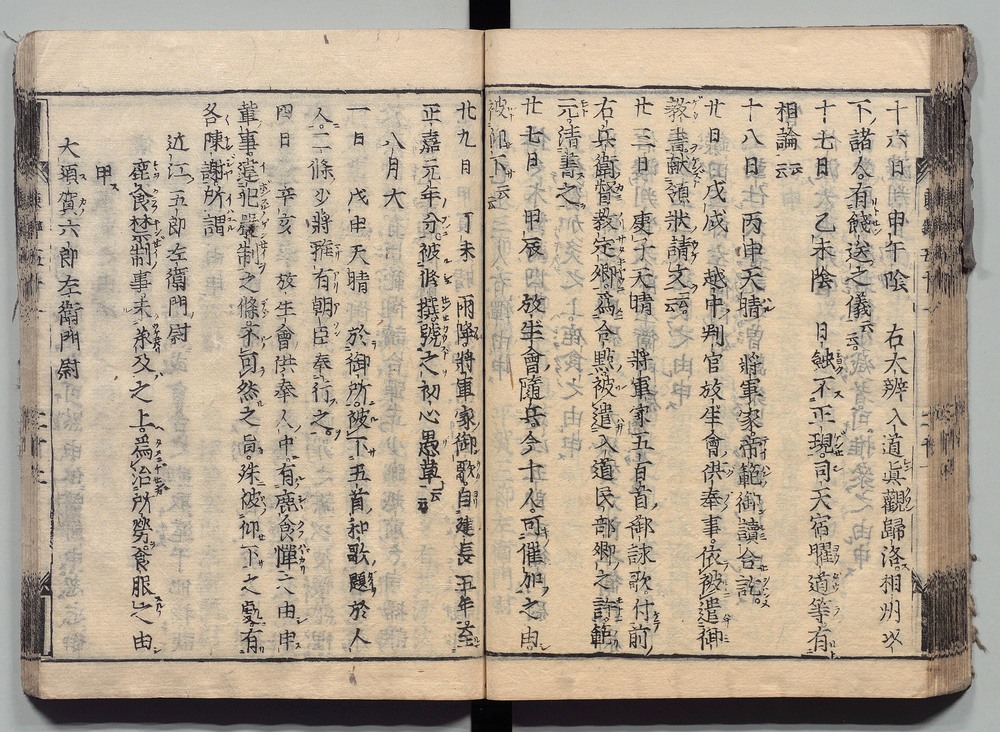 十六日甲午陰右大辨入道眞觀歸洛相州以
下諸人有餞送之儀云云
十七日乙未陰日蝕不正現司天宿曜道等有
相論云云
十八日丙申天晴將軍家帝範御讀合訖
廿日戊戌越中判官放生會供奉事依被遣御
教書獻領狀請文云云
廿三日庚子天晴將軍家五百首御詠歌付前
右兵衛督教定卿爲合點被遣入道民部卿之許範
元清書之
廿七日甲辰放生會隨兵今十人可催加之由
被仰下云云
廿九日丁未雨降將軍家御歌自建長五年至
正嘉元年分被修撰號之初心愚草云云
八月大
一日戊申天晴於御所被下五首和歌題於人
人二條少將雅有朝臣奉行之
四日辛亥放生會供奉人中有鹿食憚之由申
輩事違犯嚴制之條不可然之旨殊被仰下之處有
各陳謝所謂
近江五郎左衛門尉
鹿食禁制事未承及之上爲治所勞食服之由
申
大須賀六郎左衛門尉